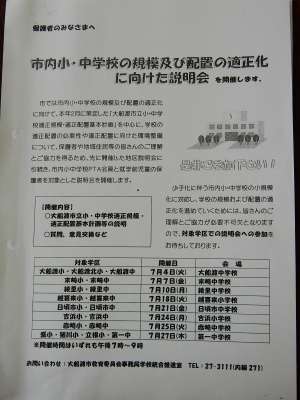 保護者のみなさまへ
市内小・中学校の規模及び配置の適正化
に向けた説明会 を開催します。
市では市内小・中学校の規模及び配置の適正化
に向けて、本年2月に策定した「大船渡市立小・中学
校適正規模・適正配置基本計画」を中心に、学校の
適正配置の必要性や適正配置に向けた環境整備
について、保護者や地域住民等の皆さんのご理解
とご協力を得るため、先に開催した地区説明会に
引続き、市内小中学校PTA会員と就学前児童の保
護者を対象とした説明会を開催します。
是非ご参加下さい!
少子化に伴う市内小・中学校の小規模
化に対処し、学校の規模および配置の適
正化を進めていくためには、皆さんのご
理解とご協力が必要不可欠となります
ので、対象学区での説明会への参加を
お待ちしております。
【開催内容】
○大船渡市立小・中学校適正規模・
適正配置基本計画等の説明
○質問、意見交換など
対象学区 開催日 会場
大船渡小・大船渡北小・大船渡中 7月4日(火) 大船渡中学校
末崎小・末崎中 7月7日(金) 末崎中学校
綾里小・綾里中 7月10日(月) 綾里中学校
越喜来小・越喜来中 7月18日(火) 越喜来小学校
日頃市小・日頃市中 7月21日(金) 日頃市中学校
吉浜小・吉浜中 7月24日(月) 吉浜小学校
赤崎小・赤崎中 7月25日(火) 赤崎中学校
盛小・猪川小・立根小・第一中 7月27日(木) 第一中学校
※開催時間はいずれも午後7時~9時
お問い合わせ:大船渡市教育委員会事務局学校統合推進室 TEL:27-3111(内線271)